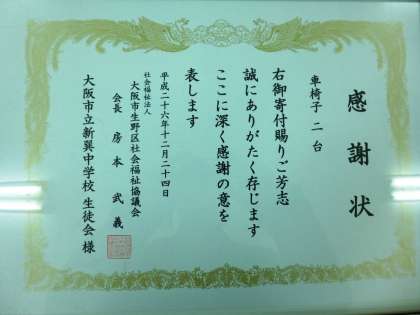 感謝状
車椅子 二台
右御寄付賜りご芳志
誠にありがたく存じます
ここに深く感謝の意を
表します
平成二十六年十二月二十四日
社会福祉法人
大阪市生野区社会福祉協議会
会長 房本武義
大阪市立新巽中学校 生徒会 様